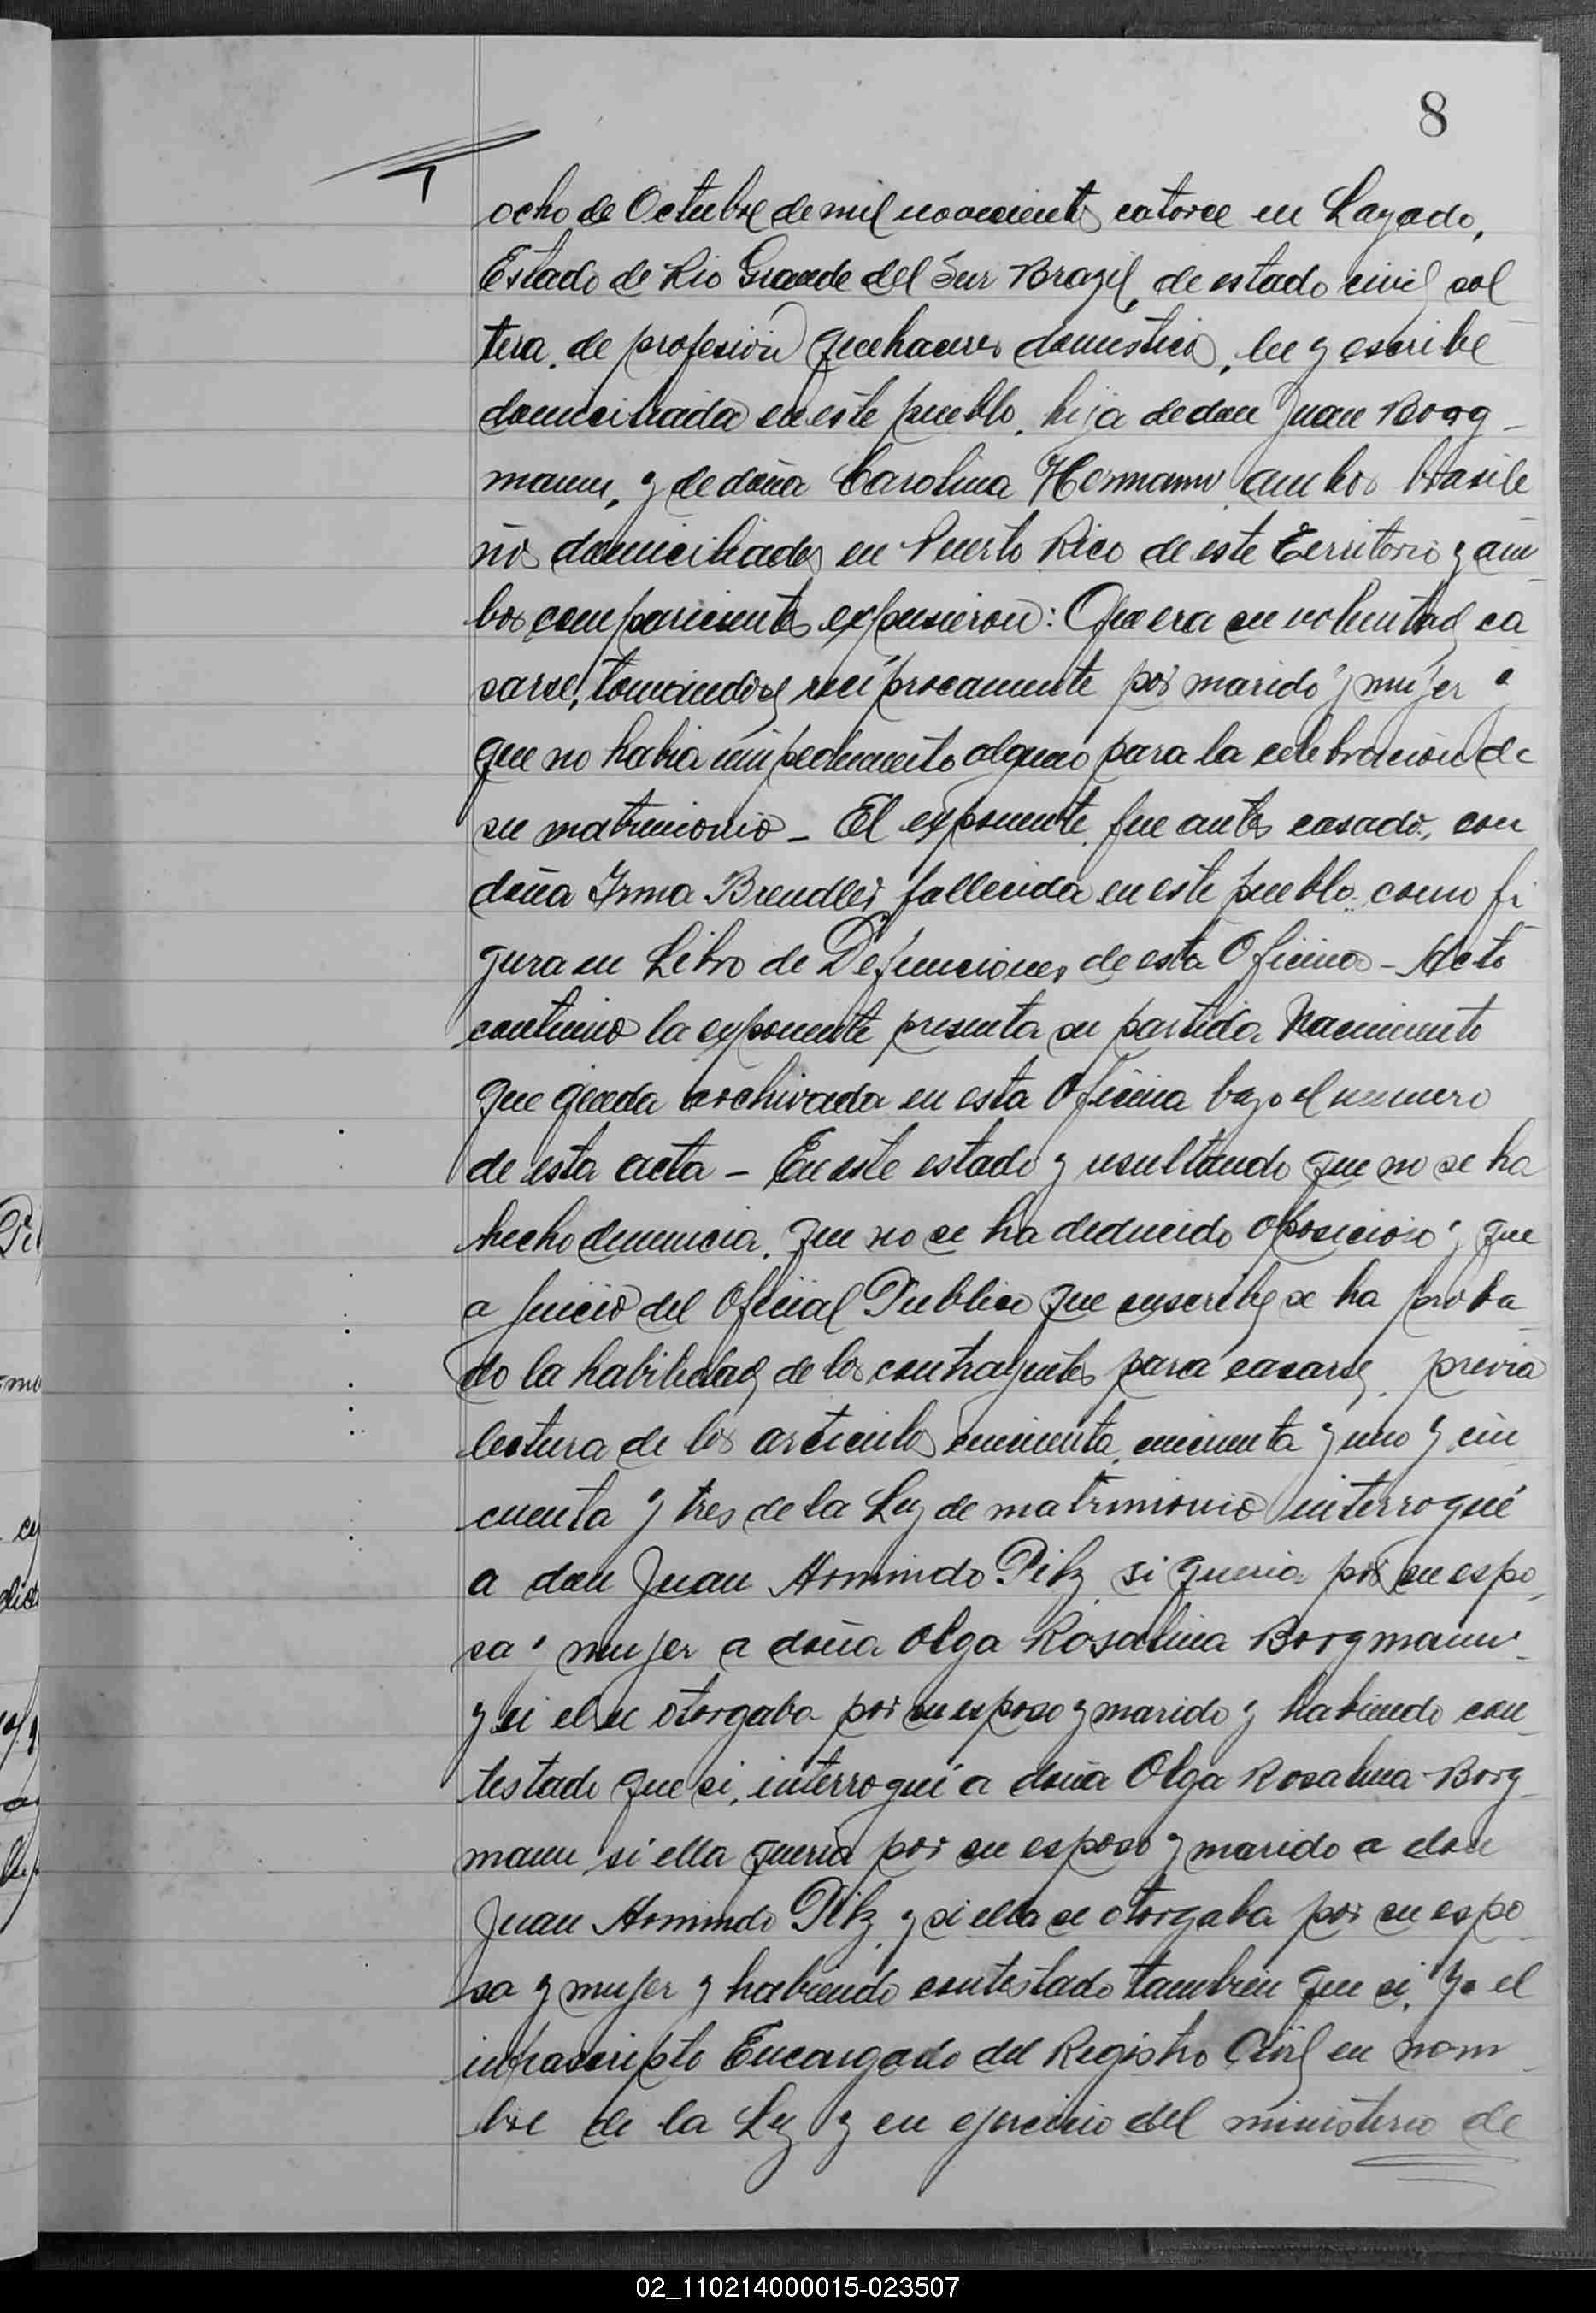 8
ocho de Octubre de mil novecientos catorce en Lagado,
Estado de Rio Grande del Sur Brazil, de estado civil sol
tera, de profesión quehaceres domesticos, lee y escribe
domiciliada en este pueblo, hija de don Juan Borg-
mann, y de doña Carolina Hermann, ambos brasile
ños domiciliados en Puerto Rico de este Territorio y am
bos comparecientes expusieron: Que era su voluntad ca
sarse, tomandose reciprocamente por marido y mujer y
que no habia impedimento alguno para la celebración de
su matrimonio - El exponente, fue antes casado, con
doña Irma Brendler, fallecida en este pueblo, como fi-
gura en Libro de Defunciones de esta Oficina - Acto
continuo la exponente presenta su partida Nacimiento
que queda archivada en esta Oficina bajo el numero
de esta acta - En este estado y resultando que no se ha
hecho denuncia, que no se ha deducido oposicion y que
a juicio del Oficial Publico que suscribe se ha proba-
do la habilidad de los contrayentes para casarse, previa
lectura de los articulos cincuenta, cincuenta y uno y cin
cuenta y tres de la Ley de matrimonio interrogué
a don Juan Armindo Pilz, si queria por su espo-
sa y mujer a doña Olga Rosalina Borgmann
y si el se otorgaba por su esposo y marido y habiendo con-
testado que si, interrogué a doña Olga Rosalina Borg-
mann si ella queria por su esposo y marido a don
Juan Armindo Pilz, y si ella se otorgaba por su espo-
sa y mujer y habiendo contestado tambien que si, Yo el
infrascripto Encargado del Registro Civil en nom-
bre de la Ley y en ejercicio del ministerio de
02_110214000015-023507